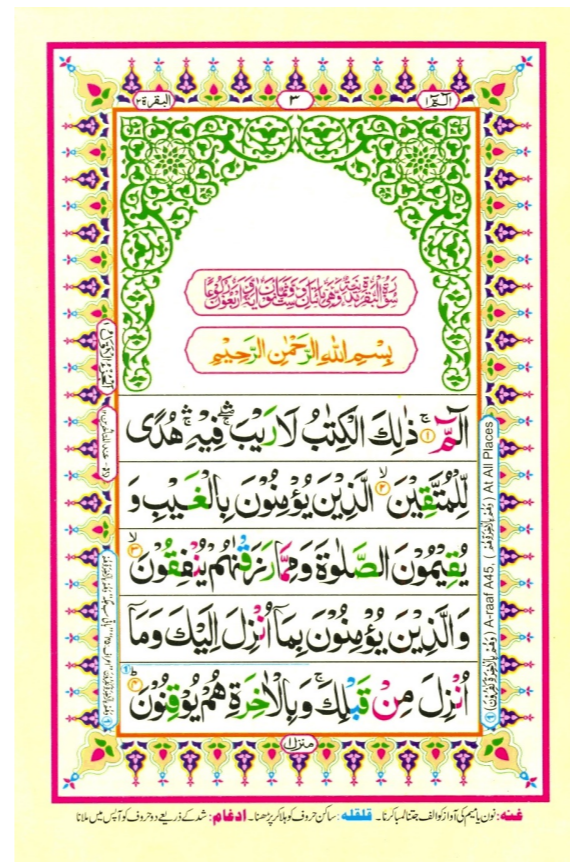 الٓمّٓ ١
٣
البقرة ٢
سُوْرَةُ الْبَقَرَةِ مَدَنِيَّةٌ وَّهِيَ مِائَتَانِ وَسِتٌّ وَّثَمَانُوْنَ اٰيَةً وَّاَرْبَعُوْنَ رُكُوْعًا
بِسْمِ اللّٰهِ الرَّحْمٰنِ الرَّحِيْمِ
الٓمّٓ ۚ﴿۱﴾ ذٰلِكَ الْكِتٰبُ لَا رَيْبَ ۛۖ فِيْهِ ۛۚ هُدًى
لِّلْمُتَّقِيْنَ ۙ﴿۲﴾ الَّذِيْنَ يُؤْمِنُوْنَ بِالْغَيْبِ وَ
يُقِيْمُوْنَ الصَّلٰوةَ وَمِمَّا رَزَقْنٰهُمْ يُنْفِقُوْنَ ۙ﴿۳﴾
وَالَّذِيْنَ يُؤْمِنُوْنَ بِمَاۤ اُنْزِلَ اِلَيْكَ وَمَاۤ
اُنْزِلَ مِنْ قَبْلِكَ ۚ وَبِالْاٰخِرَةِ هُمْ يُوْقِنُوْنَ ؕ﴿۴﴾
منزل ١
A-raaf A45, (وَهُمْ بِالْاٰخِرَةِ كٰفِرُوْنَ)
At All Places (وَهُمْ بِالْاٰخِرَةِ هُمْ)
غنه: نون یا میم کی آواز کو الف جتنا لمبا کرنا۔ قلقله: ساکن حروف کو ہلا کر پڑھنا۔ ادغام: شد کے ذریعے دو حروف کو آپس میں ملانا